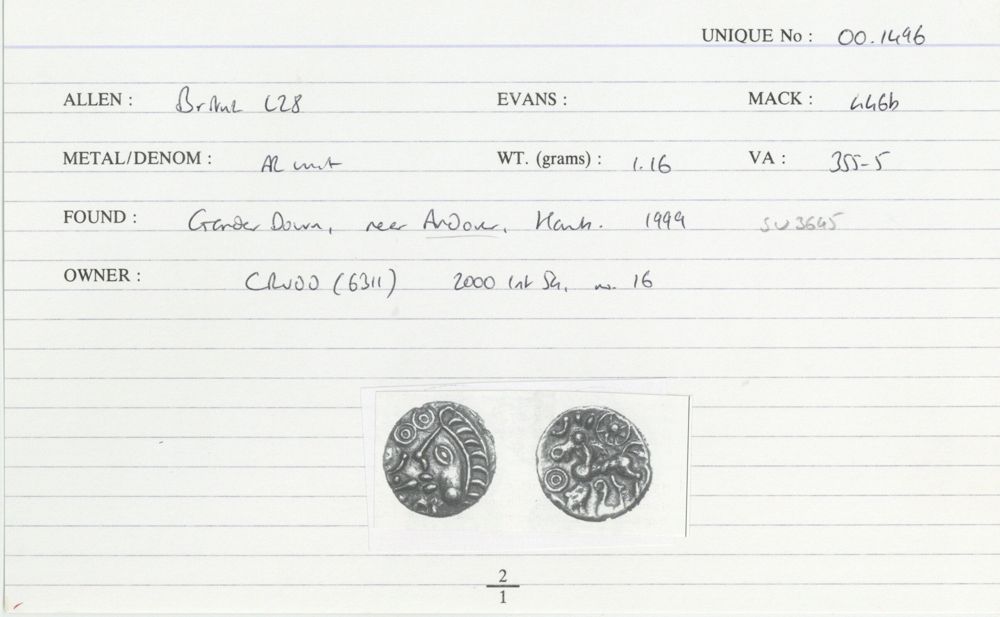 UNIQUE No : 00.1496
ALLEN : British L28 EVANS : MACK : 446b
METAL/DENOM : AR unit WT. (grams) : 1.16 VA : 355-5
FOUND : Gander Down, near Andover, Hants. 1999 SU3645
OWNER : CR (6311) 2000 Int 16
2
1